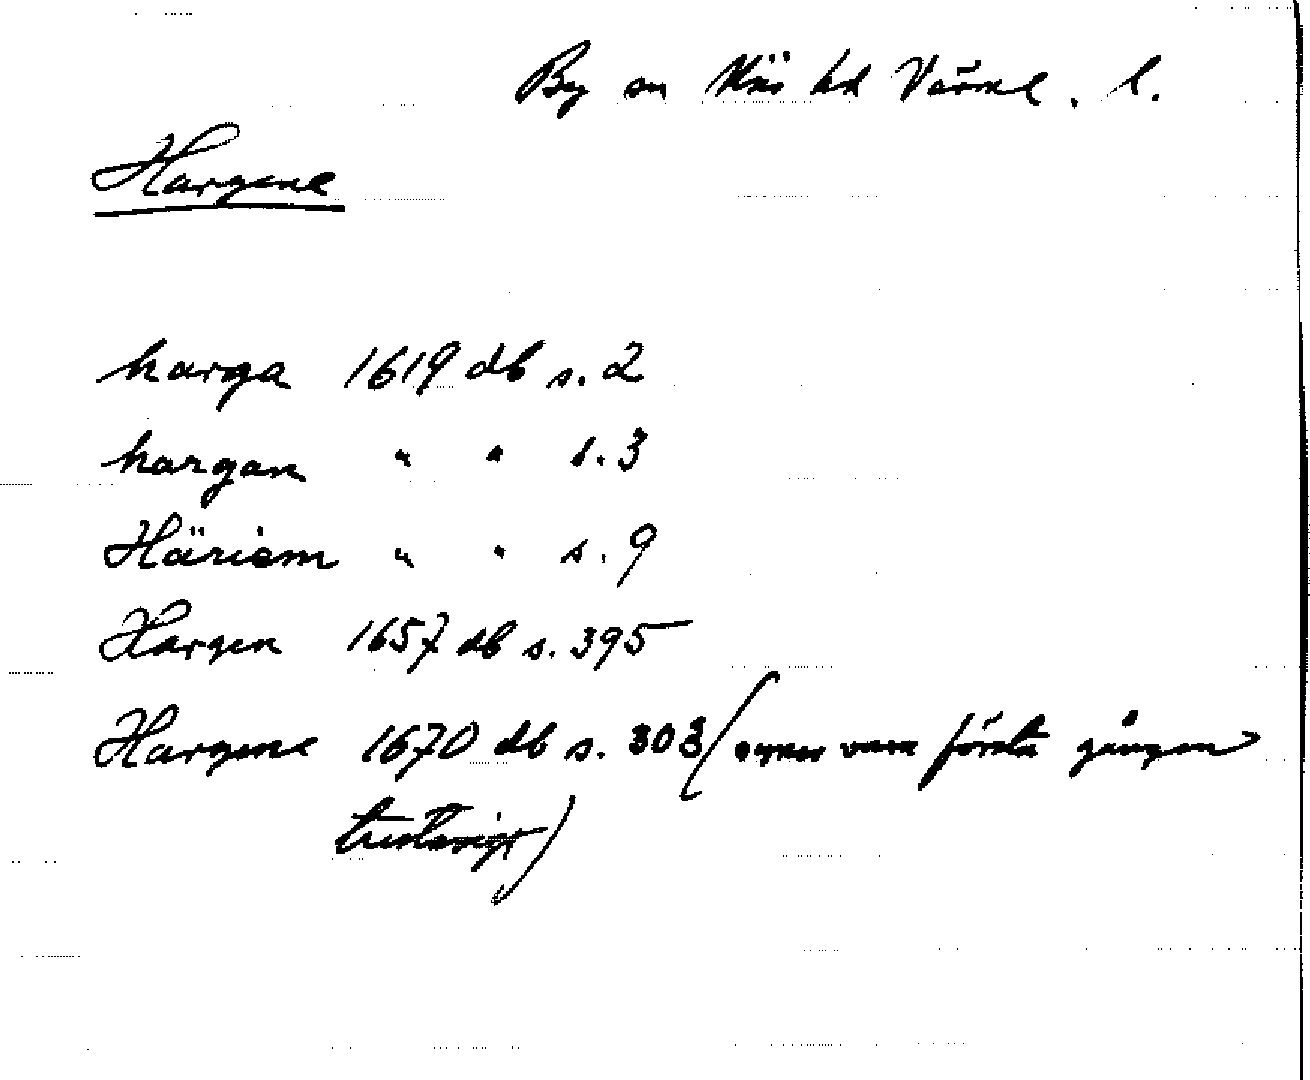 By sn Näs hd Värml. l.
Hargene
harga 1619 db s. 2
hargan " " s. 3
Häriem " " s. 9
Hargen 1657 db s. 395
Hargene 1670 db s. 303 (synes vara första gången
trestavigt)